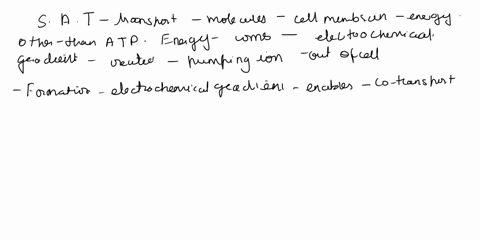 S. A. T - transport - molecules - cell membran - energy.
other - than ATP. Energy - coms - electrochemical.
geadient - created - pumping ion - out of cell
- Formation - electrochemical geadient - enables - co-transport